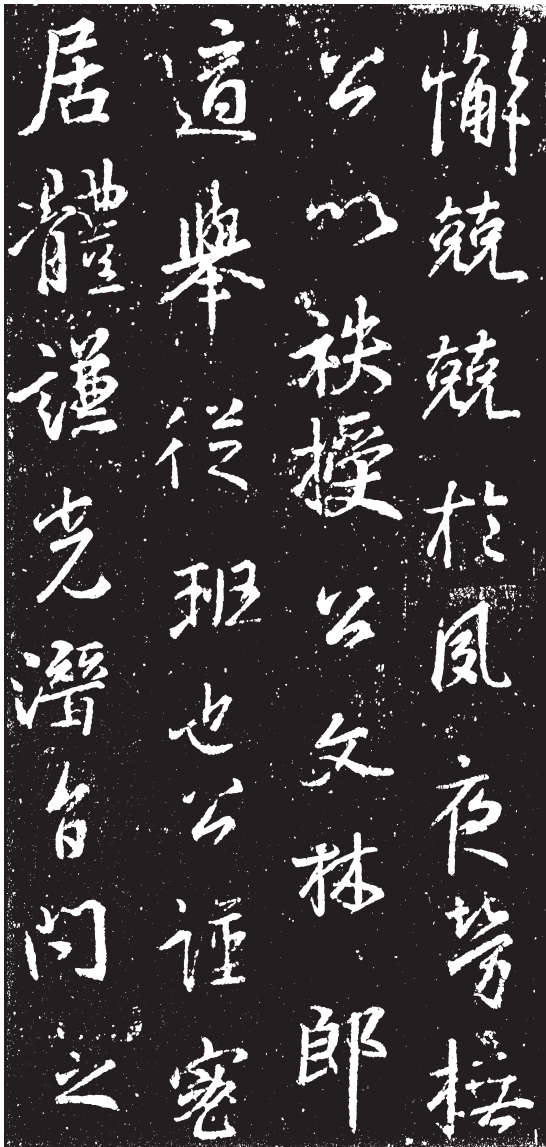 懈兢兢於夙夜勞
公以袟授公文林郎
適舉從班也公謹密
居體謙光濬問之